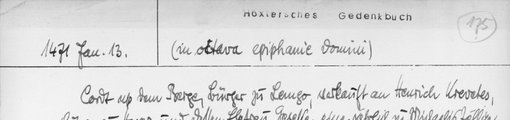 Höxtersches Gedenkbuch
175
1471 Jan. 13. (in octava epiphanie domini)
Cordt up dem Berge, Bürger zu Lemgo, verkauft an Henrich Krevetes,
und dessen